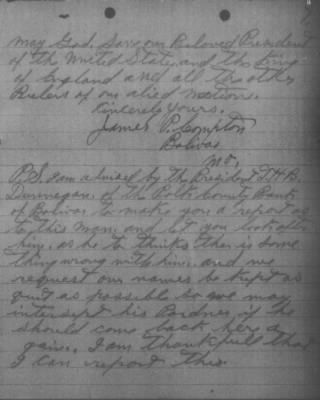 may God. Save our Beloved President
of the United State, and the King
of England and all the other
Rulers of our alied nation.
Sincerely yours,
James P. Compton
Bolivar
Mo,
P.S. I am advised by the President T.H.B.
Dunnegan. of the Polk County Bank
of Bolivar to make you a report as
to this man, and let you look after
him. as he to thinks ther is some
thing wrong with him. and we
request our names be kept as
quit as possible so we may
intersept his if he
should come back her a
gain. I am thankfull that
I can report this.